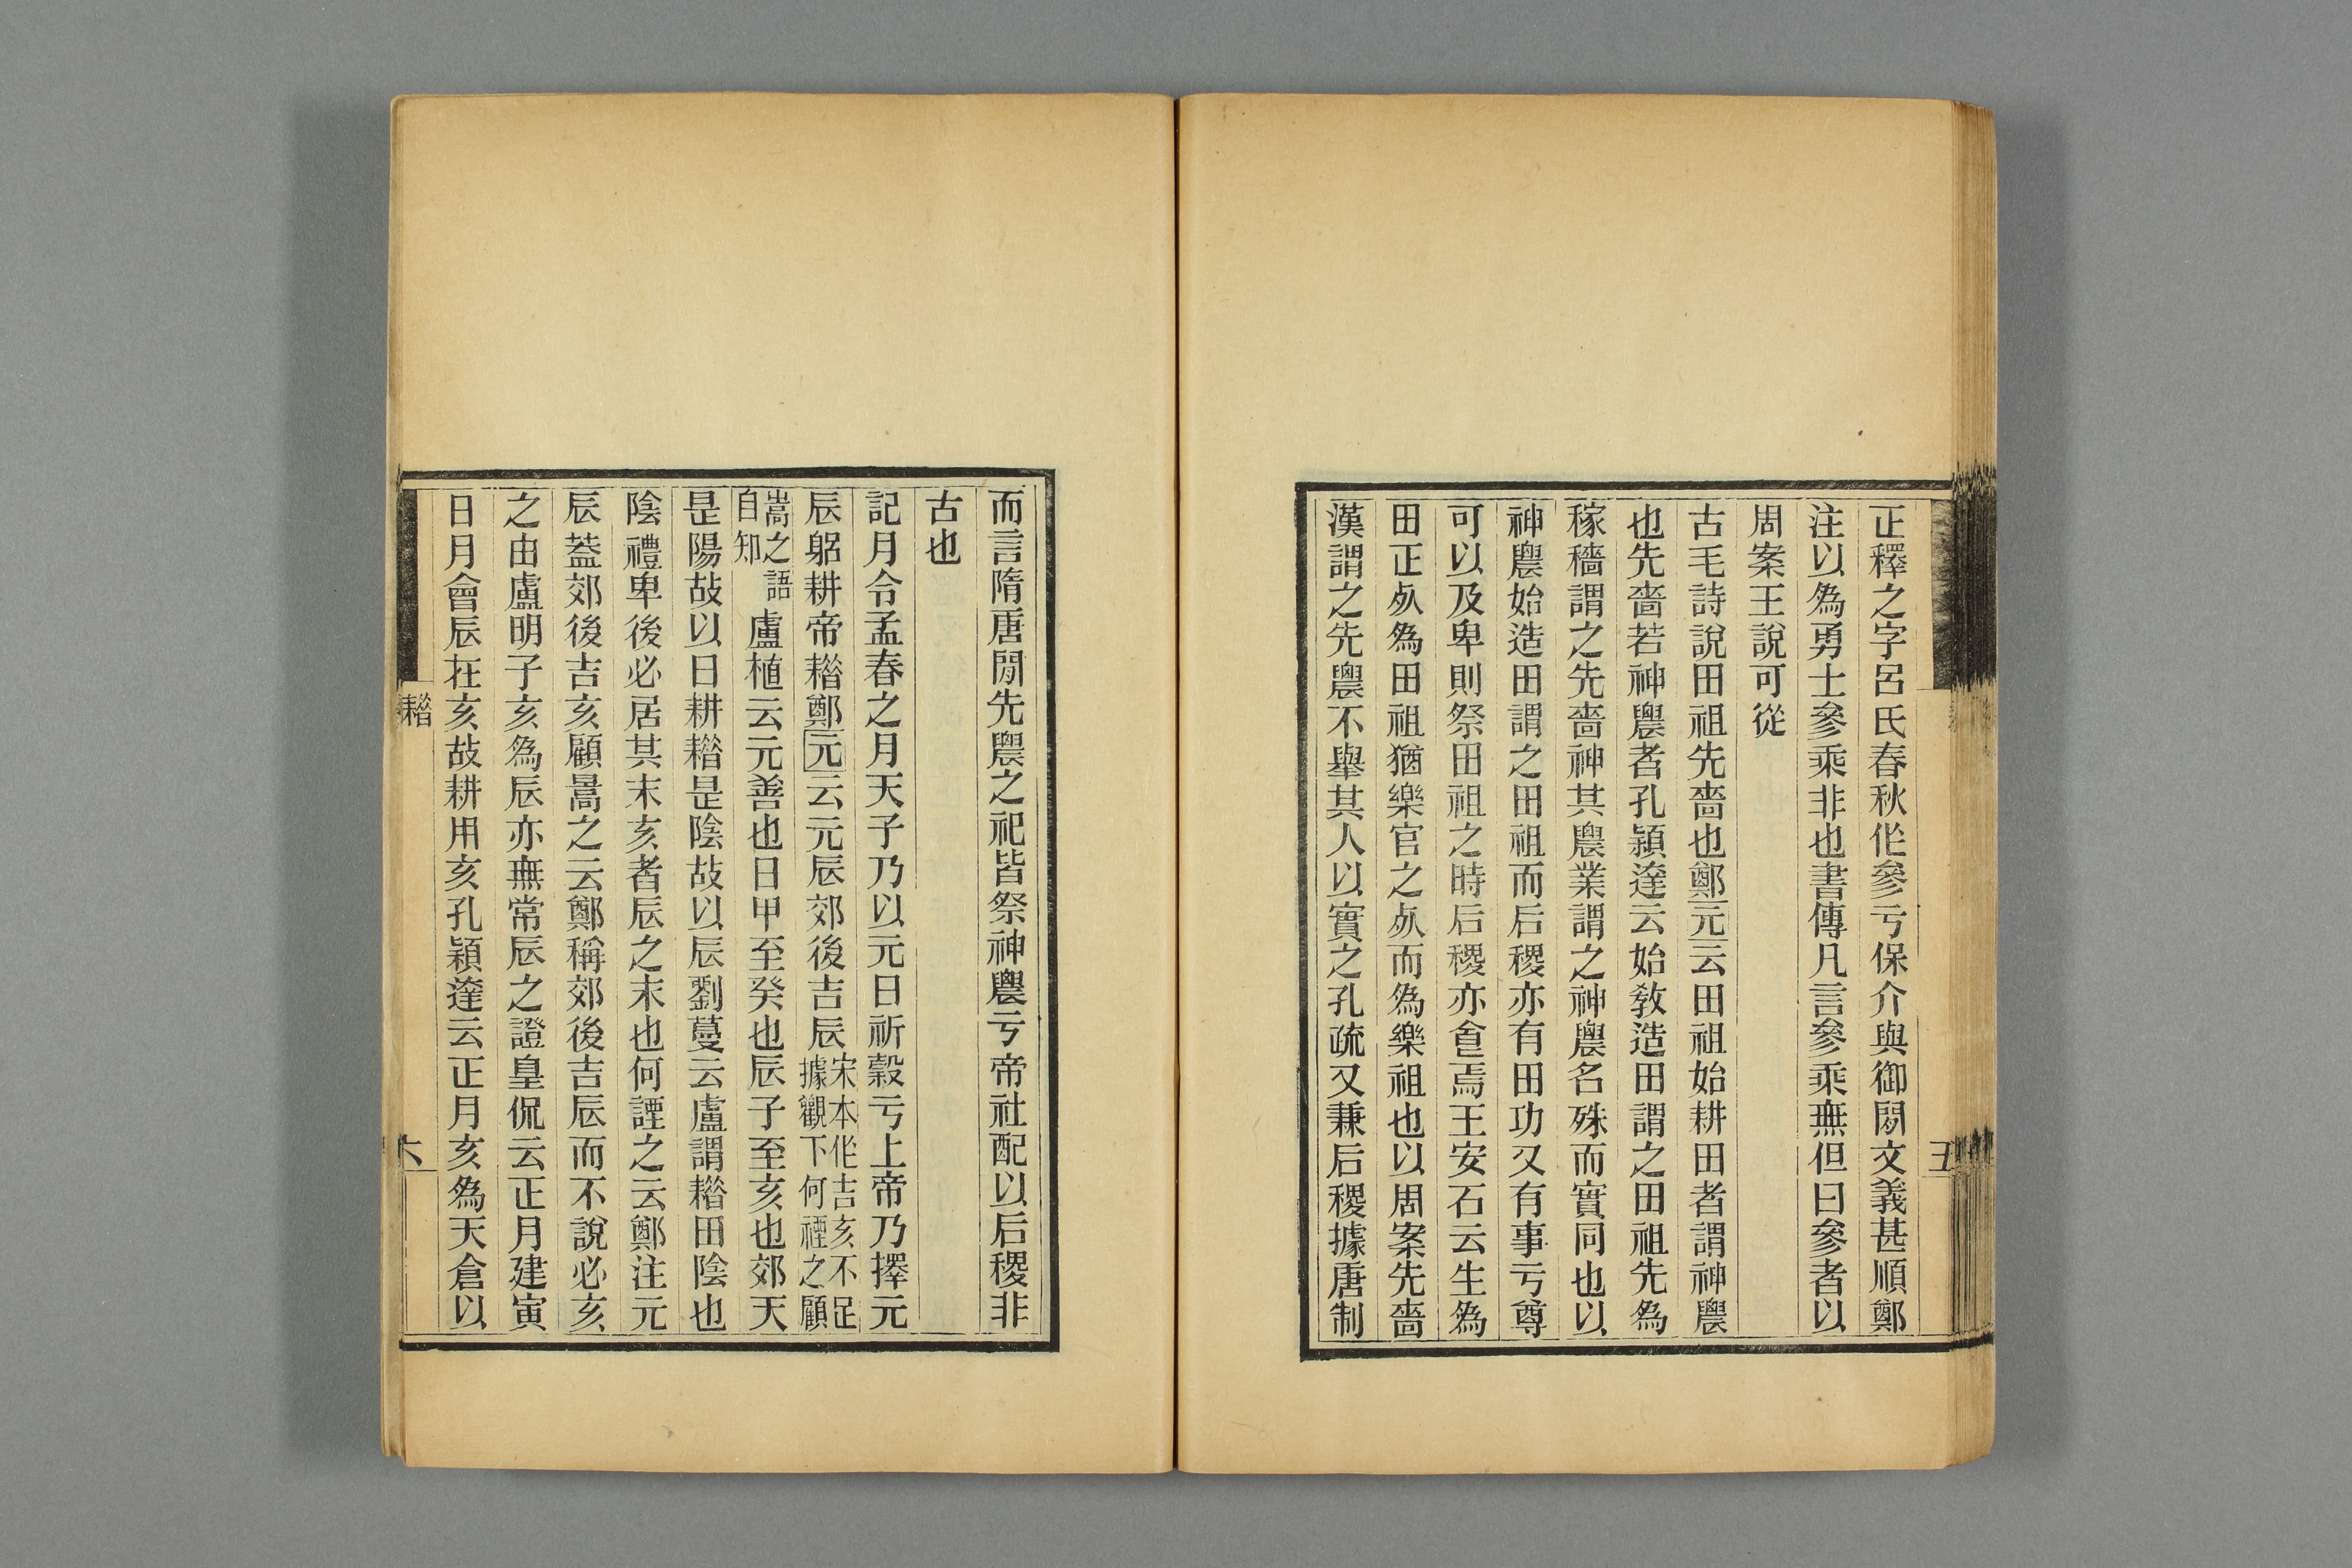 正釋之字呂氏春秋作參亏保介與御閒文義甚順鄭
注以為勇士參乘非也書傳凡言參乘無但曰參者以
周案王說可從
古毛詩說田祖先嗇也鄭元云田祖始耕田者謂神農
也先嗇若神農者孔穎達云始敎造田謂之田祖先為
稼穡謂之先嗇神其農業謂之神農名殊而實同也以
神農始造田謂之田祖而后稷亦有田功又有事亏尊
可以及卑則祭田祖之時后稷亦㑹焉王安石云生為
田正𣦸為田祖猶樂官之𣦸而為樂祖也以周案先嗇
漢謂之先農不舉其人以實之孔疏又兼后稷據唐制
五
而言隋唐閒先農之祀皆祭神農亏帝社配以后稷非
古也
記月令孟春之月天子乃以元日祈穀亏上帝乃擇元
辰躬耕帝耤鄭元云元辰郊後吉辰宋本作吉亥不足據觀下何禋之顧
暠之語自知盧植云元善也日甲至癸也辰子至亥也郊天
是陽故以日耕耤是陰故以辰劉蔓云盧謂耤田陰也
陰禮卑後必居其末亥者辰之末也何諲之云鄭注元
辰蓋郊後吉亥顧暠之云鄭稱郊後吉辰而不說必亥
之由盧明子亥為辰亦無常辰之證皇侃云正月建寅
日月會辰在亥故耕用亥孔穎達云正月亥為天倉以
耤
六